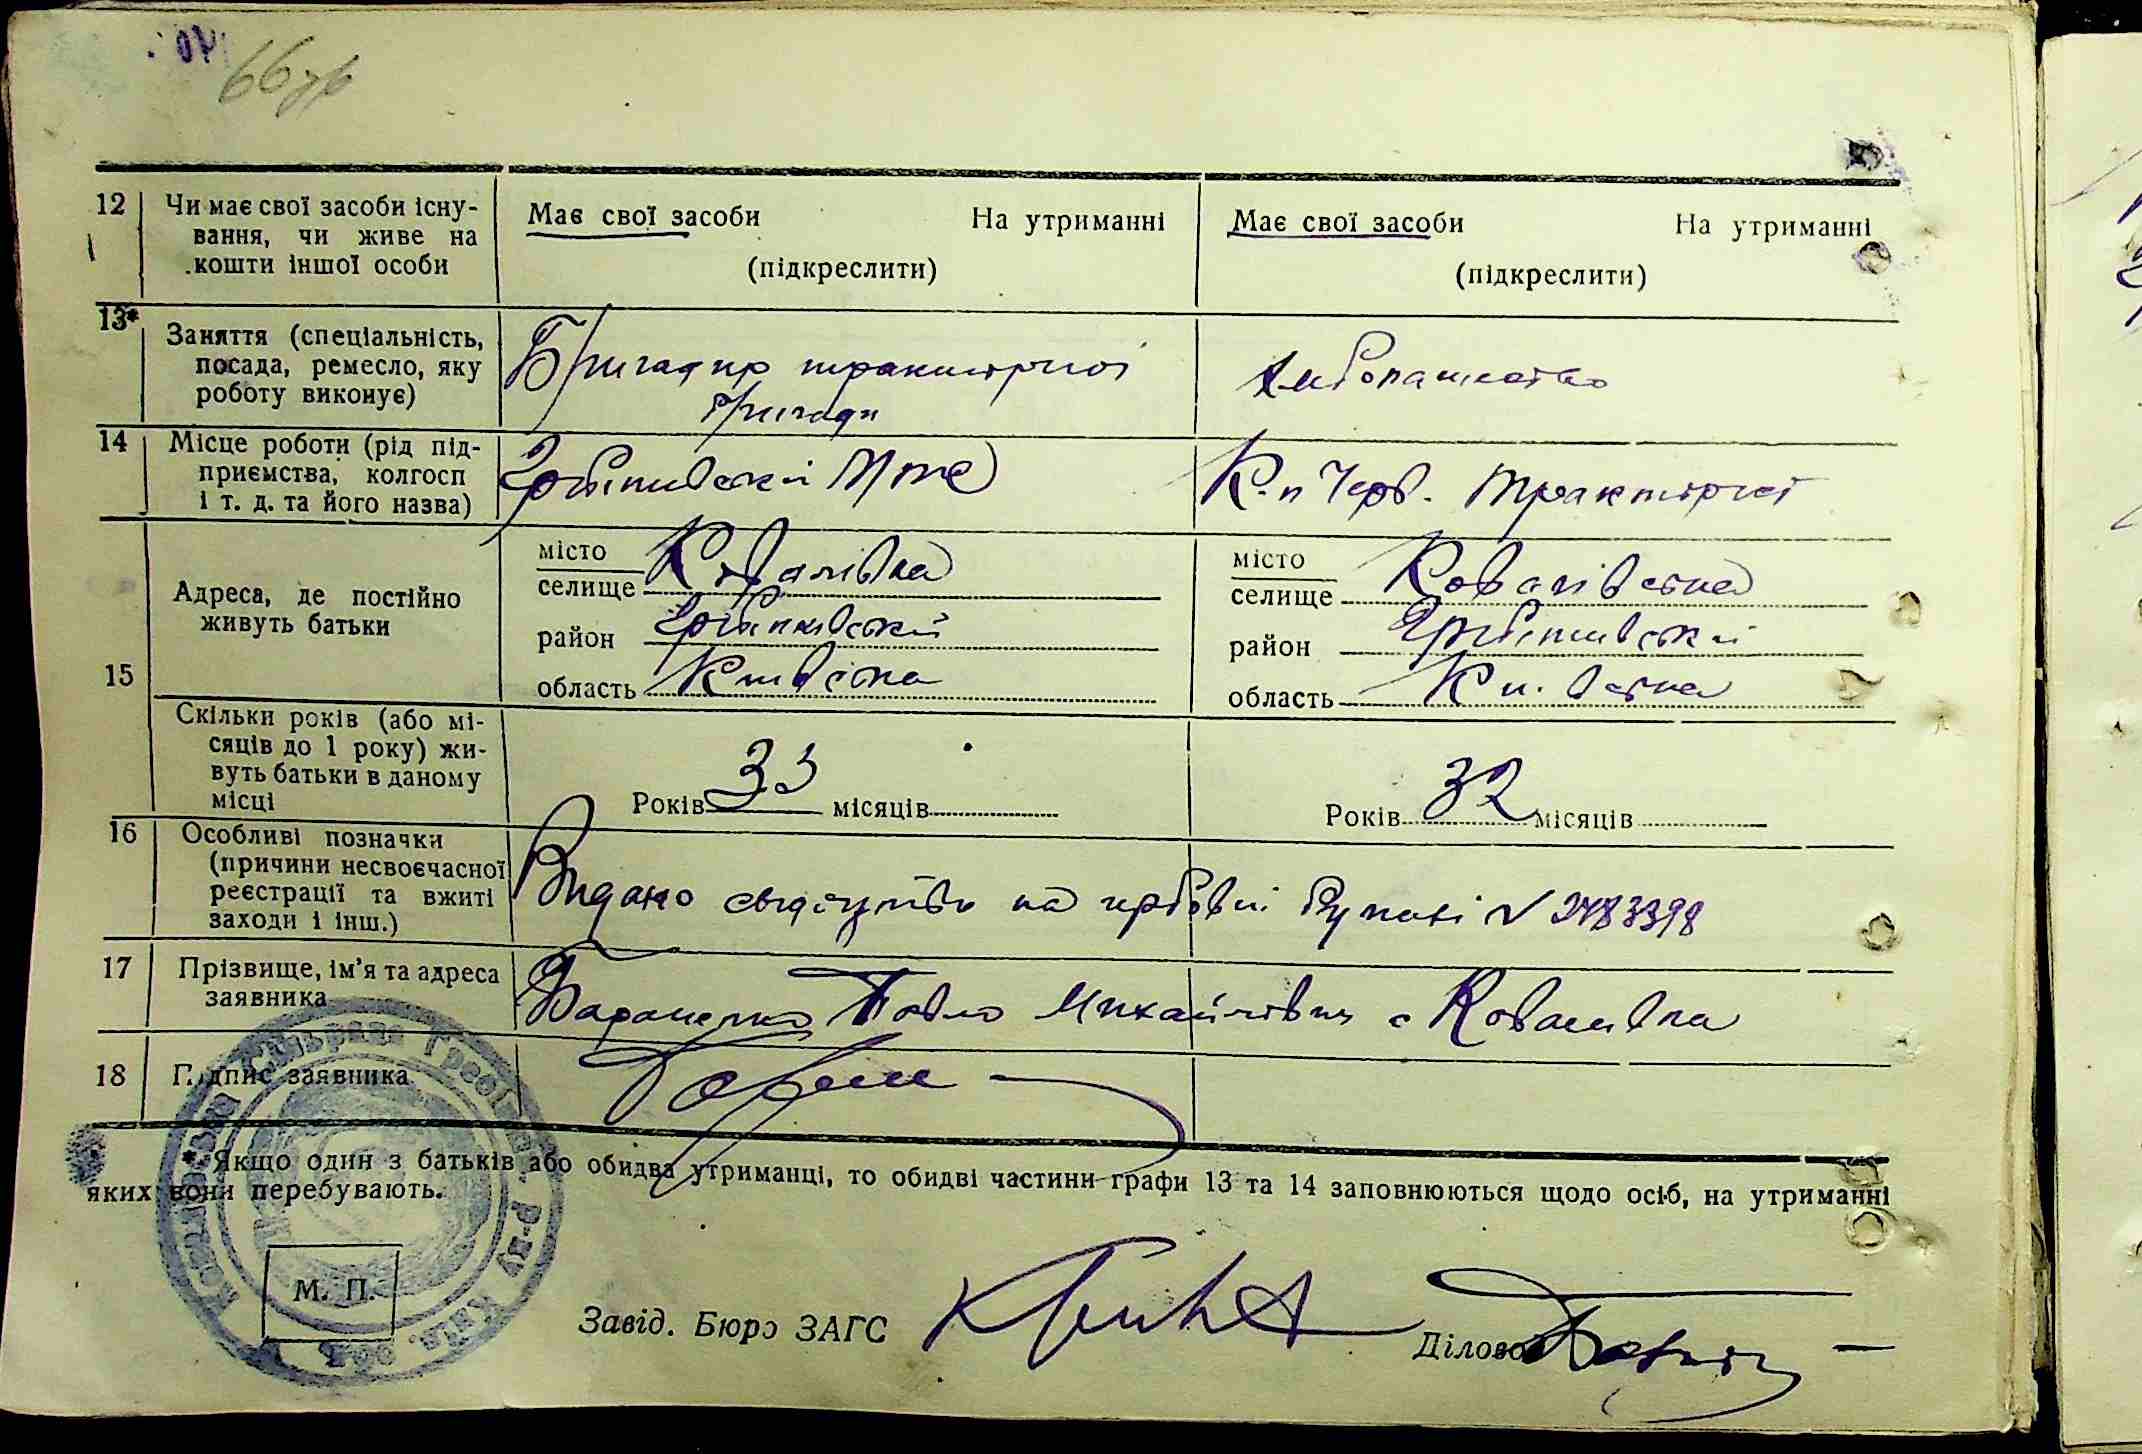 66зв
12 Чи має свої засоби існу-
вання, чи живе на
кошти іншої особи
Має свої засоби На утриманні
(підкреслити)
Має свої засоби На утриманні
(підкреслити)
13* Заняття (спеціальність,
посада, ремесло, яку
роботу виконує)
Бригадир тракторної
бригади
хліборобство
14 Місце роботи (рід під-
приємства, колгосп
і т. д. та його назва)
Гребінківській МТС
К-п Черв. Тракторист
15 Адреса, де постійно
живуть батьки
місто
селище Ковалівка
район Гребінківській
область Київська
місто
селище Ковалівська
район Гребінківській
область Київська
Скільки років (або мі-
сяців до 1 року) жи-
вуть батьки в даному
місці
Років 33 місяців
Років 32 місяців
16 Особливі позначки
(причини несвоєчасної
реєстрації та вжиті
заходи і інш.)
Видано свідоцтво на гербовій бумазі № 2483398
17 Прізвище, ім'я та адреса
заявника
Павло Михайлович с Ковалівка
18 Підпис заявника
* Якщо один з батьків або обидва утриманці, то обидві частини графи 13 та 14 заповнюються щодо осіб, на утриманні
яких вони перебувають.
М. П.
Завід. Бюро ЗАГС
Діловод